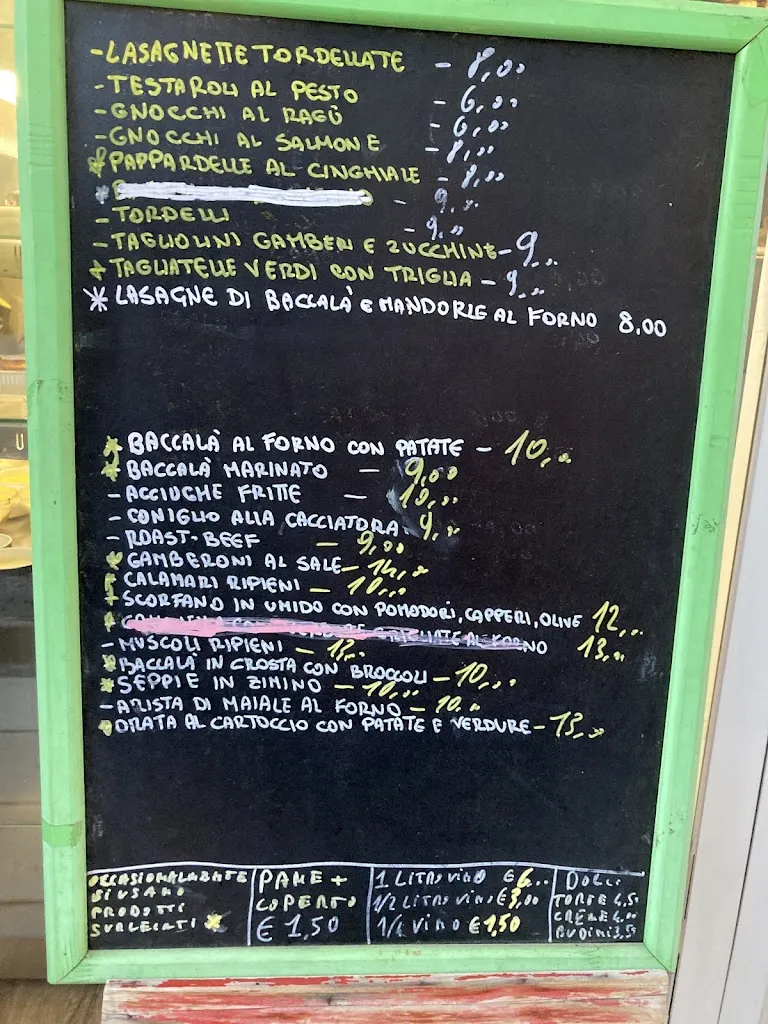 - LASAGNETTE TORDELLATE - 8,00
- TESTAROLI AL PESTO - 6,00
- GNOCCHI AL RAGÙ - 6,00
- GNOCCHI AL SALMONE - 8,00
* PAPPARDELLE AL CINGHIALE - 8,00
* - 9,00
- TORDELLI - 9,00
- TAGLIOLINI GAMBERI E ZUCCHINE - 9,00
* TAGLIATELLE VERDI CON TRIGLIA - 9,00
* LASAGNE DI BACCALÀ E MANDORLE AL FORNO 8.00
* BACCALÀ AL FORNO CON PATATE - 10,00
* BACCALÀ MARINATO - 9,00
- ACCIUGHE FRITTE - 10,00
- CONIGLIO ALLA CACCIATORA 9,00
- ROAST-BEEF - 9,00
* GAMBERONI AL SALE - 14,00
* CALAMARI RIPIENI - 10,00
* SCORFANO IN UMIDO CON POMODORI, CAPPERI, OLIVE 12,00
* GRIGLIATE AL FORNO 13,00
- MUSCOLI RIPIENI -
* BACCALÀ IN CROSTA CON BROCCOLI - 10,00
* SEPPIE IN ZIMINO - 10,00
- ARISTA DI MAIALE AL FORNO - 10,00
* ORATA AL CARTOCCIO CON PATATE E VERDURE - 13,00
OCCASIONALMENTE
SI USANO
PRODOTTI
SURGELATI *
PANE +
COPERTO
€ 1,50
1 LITRO VINO € 6,00
1/2 LITRO VINO € 3,00
1/4 VINO € 1,50
DOLCI
TORTE 4,50
CREME 4,00
BUDINI 3,50